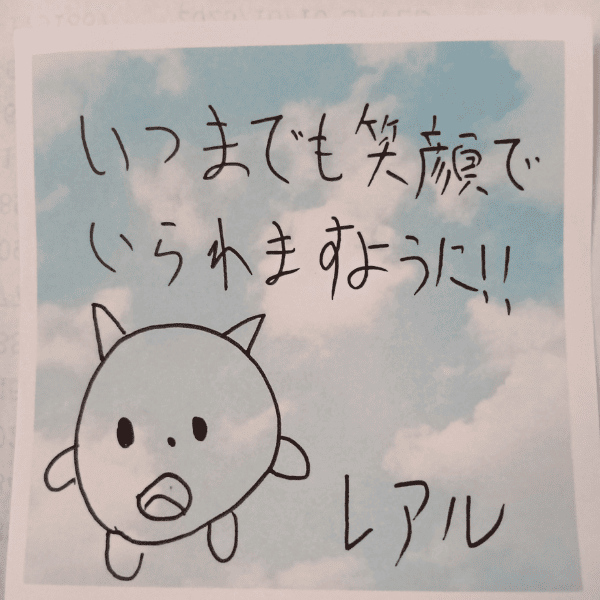 いつまでも笑顔で
いられますように!!
レアル